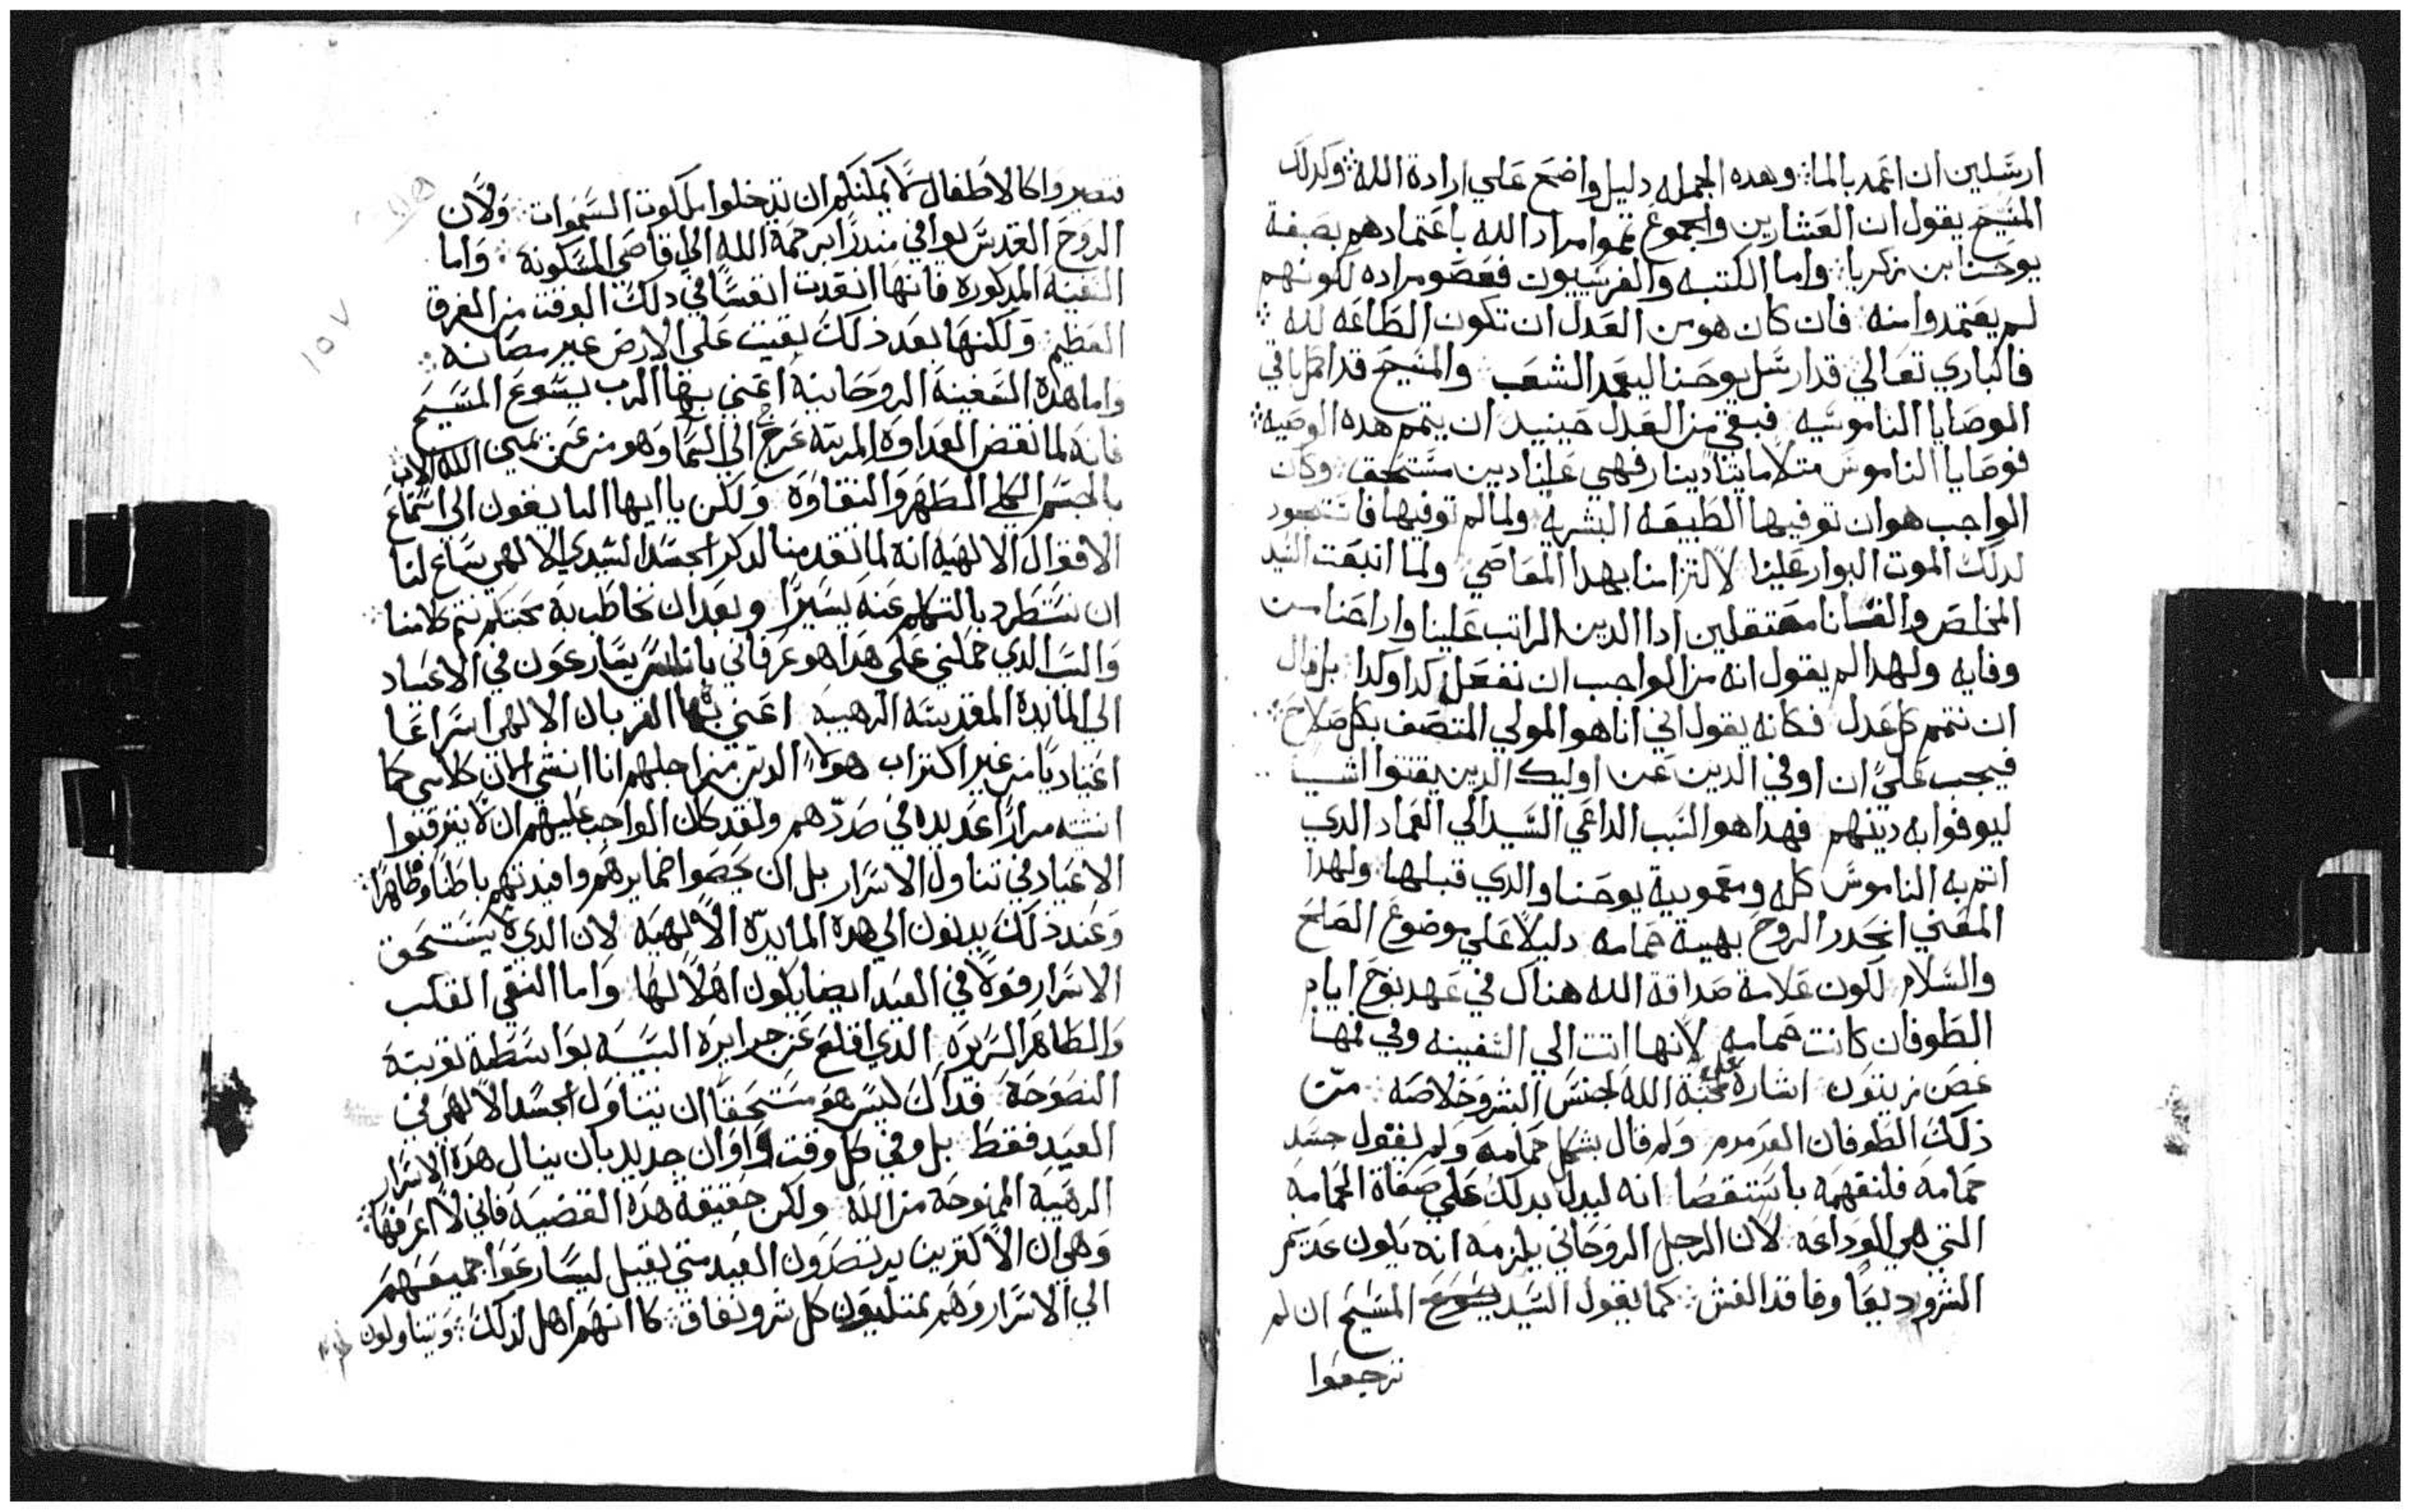 ارسلين ان اعمد بالما ∴ وهده الجمله دليل واضح علي ارادة الله ∴ وكدلك
المسيح يقول ان العشارين والجموع تمموا مراد الله باعتمادهم بصبغة
يوحنا ابن زكريا ∴ واما الكتبه والفريسيون فعصو مراده لكونهم
لم يعتمدوا منه ∴ فان كان هو من العدل ان تكون الطاعه لله ∴
فالباري تعالي قد ارسل يوحنا ليعمد الشعب والمسيح قد اكمل باقي
الوصايا الناموسيه فبقي من العدل حينيد ان يتمم هده الوصيه ∴
فوصايا الناموس متلا مايتا دينار فهي علينا دين مستحق ∴ وكان
الواجب هو ان توفيها الطبيعه البشريه ولما لم توفيها
لدلك الموت البوار علينا لالتزامنا بهدا المعاصي ولما انبعت السيد
المخلص والفانا معتقلين ادا الدين الراتب علينا واراحنا من
وفايه ولهدا لم يقول انه من الواجب ان نفعل كدا وكدا بل قال
ان نتمم كل عدل فكانه يقول اني انا هو المولي المتصف بكل صلاح ∴
فيجب علي ان اوفي الدين عن اوليك الدين لم يقتنوا اشيا
ليوفوا به دينهم فهدا هو السبب الداعي السيد الي العماد الدي
اتم به الناموس كله ومعمودية يوحنا والدي قبلها ∴ ولهدا
المعني انحدر الروح بهية حمامه دليلا علي موضوع الصلح
والسلام لكون علامة صداقة الله هناك في عهد نوح ايام
الطوفان كانت حمامه لانها اتت الي السفينه وفي فمها
غصن زيتون اشارة علي محبة الله لجنس البشر وخلاصه من
ذلك الطوفان العرمرم ولم قال بشكل حمامه ولم يقول جسد
حمامه فلنفهمه باستقصا انه ليدلنا بدلك علي صفاة الحمامه
التي هي الوداعه لان الرجل الروحاني يلزمه انه يكون عديم
الشر وديعا وفاقد الغش ∴ كما يقول السيد يسوع المسيح ان لم
ترجعوا
تصيروا كالاطفال لا يمكنكم ان تدخلوا ملكوت السموات ∴ ولان
الروح القدس يوافي منذرا برحمة الله الي اقاصي المسكونة ∴ واما
السفينة المدكوره فانها انقدت انفسا في دلك الوقت من الغرق
العظيم ∴ ولكنها بعد ذلك بقيت علي الارض غير مصانه ∴
واما هذه السفينة الروحانية اعني بها الرب يسوع المسيح
فانه لما نقض العداوة المربته عرج الي السما وهو من عن يمين الله الاب
بالجسم الكلي الطهر والنقاوة ولكن يا ايها السايغون الي استماع
الاقوال الالهيه انه لما تقدمنا لدكر الجسد السيدي الالهي ساغ لنا
ان نستطرد بالتكلم عنه يسيرا وبعد ان نخاطب به محبتكم نتم كلامنا ∴
والسبب الدي حملني علي هدا هو عرفاني بان كثيرين يسارعون في الاعياد
الي المايدة المقدسة الرهيبه اعني بها القربان الالهي اسراعا
اعتياديا من غير اكتراب هولا الدين من اجلهم انا انشي الان كلامي كما
انشته مرارا عديده في صددهم ولقد كان الواجب عليهم ان لا يترقبوا
الاعياد في تناول الاسرار بل ان يمحصوا ضمايرهم وافيدتهم باطنا وظاهرا ∴
وعند ذلك يدنون الي هدة المايدة الالهيه لان الدي لا يستحق
الاسرار فولا في العيد ايضا يكون اهلا لها واما النقي القلب
والطاهر السريرة الذي اقلع عن جرايره السيه بواسطة توبته
النصوحة فداك ليس هو مستحقا ان يتناول الجسد الالهي في
العيد فقط بل وفي كل وقت واوان جدير بان ينال هذه الاسرار
الرهيبة الممنوحة من الله ولكن حقيقة هده القضية فاني لا اعرفها ∴
وهي ان الاكثرين يرتصدون العيد متي يقبل ليسارعوا جميعهم
الي الاسرار وهم ممتليون كل شر ونفاق ∴ كانهم اهل لذلك ∴ ويتناولون
١٥٧